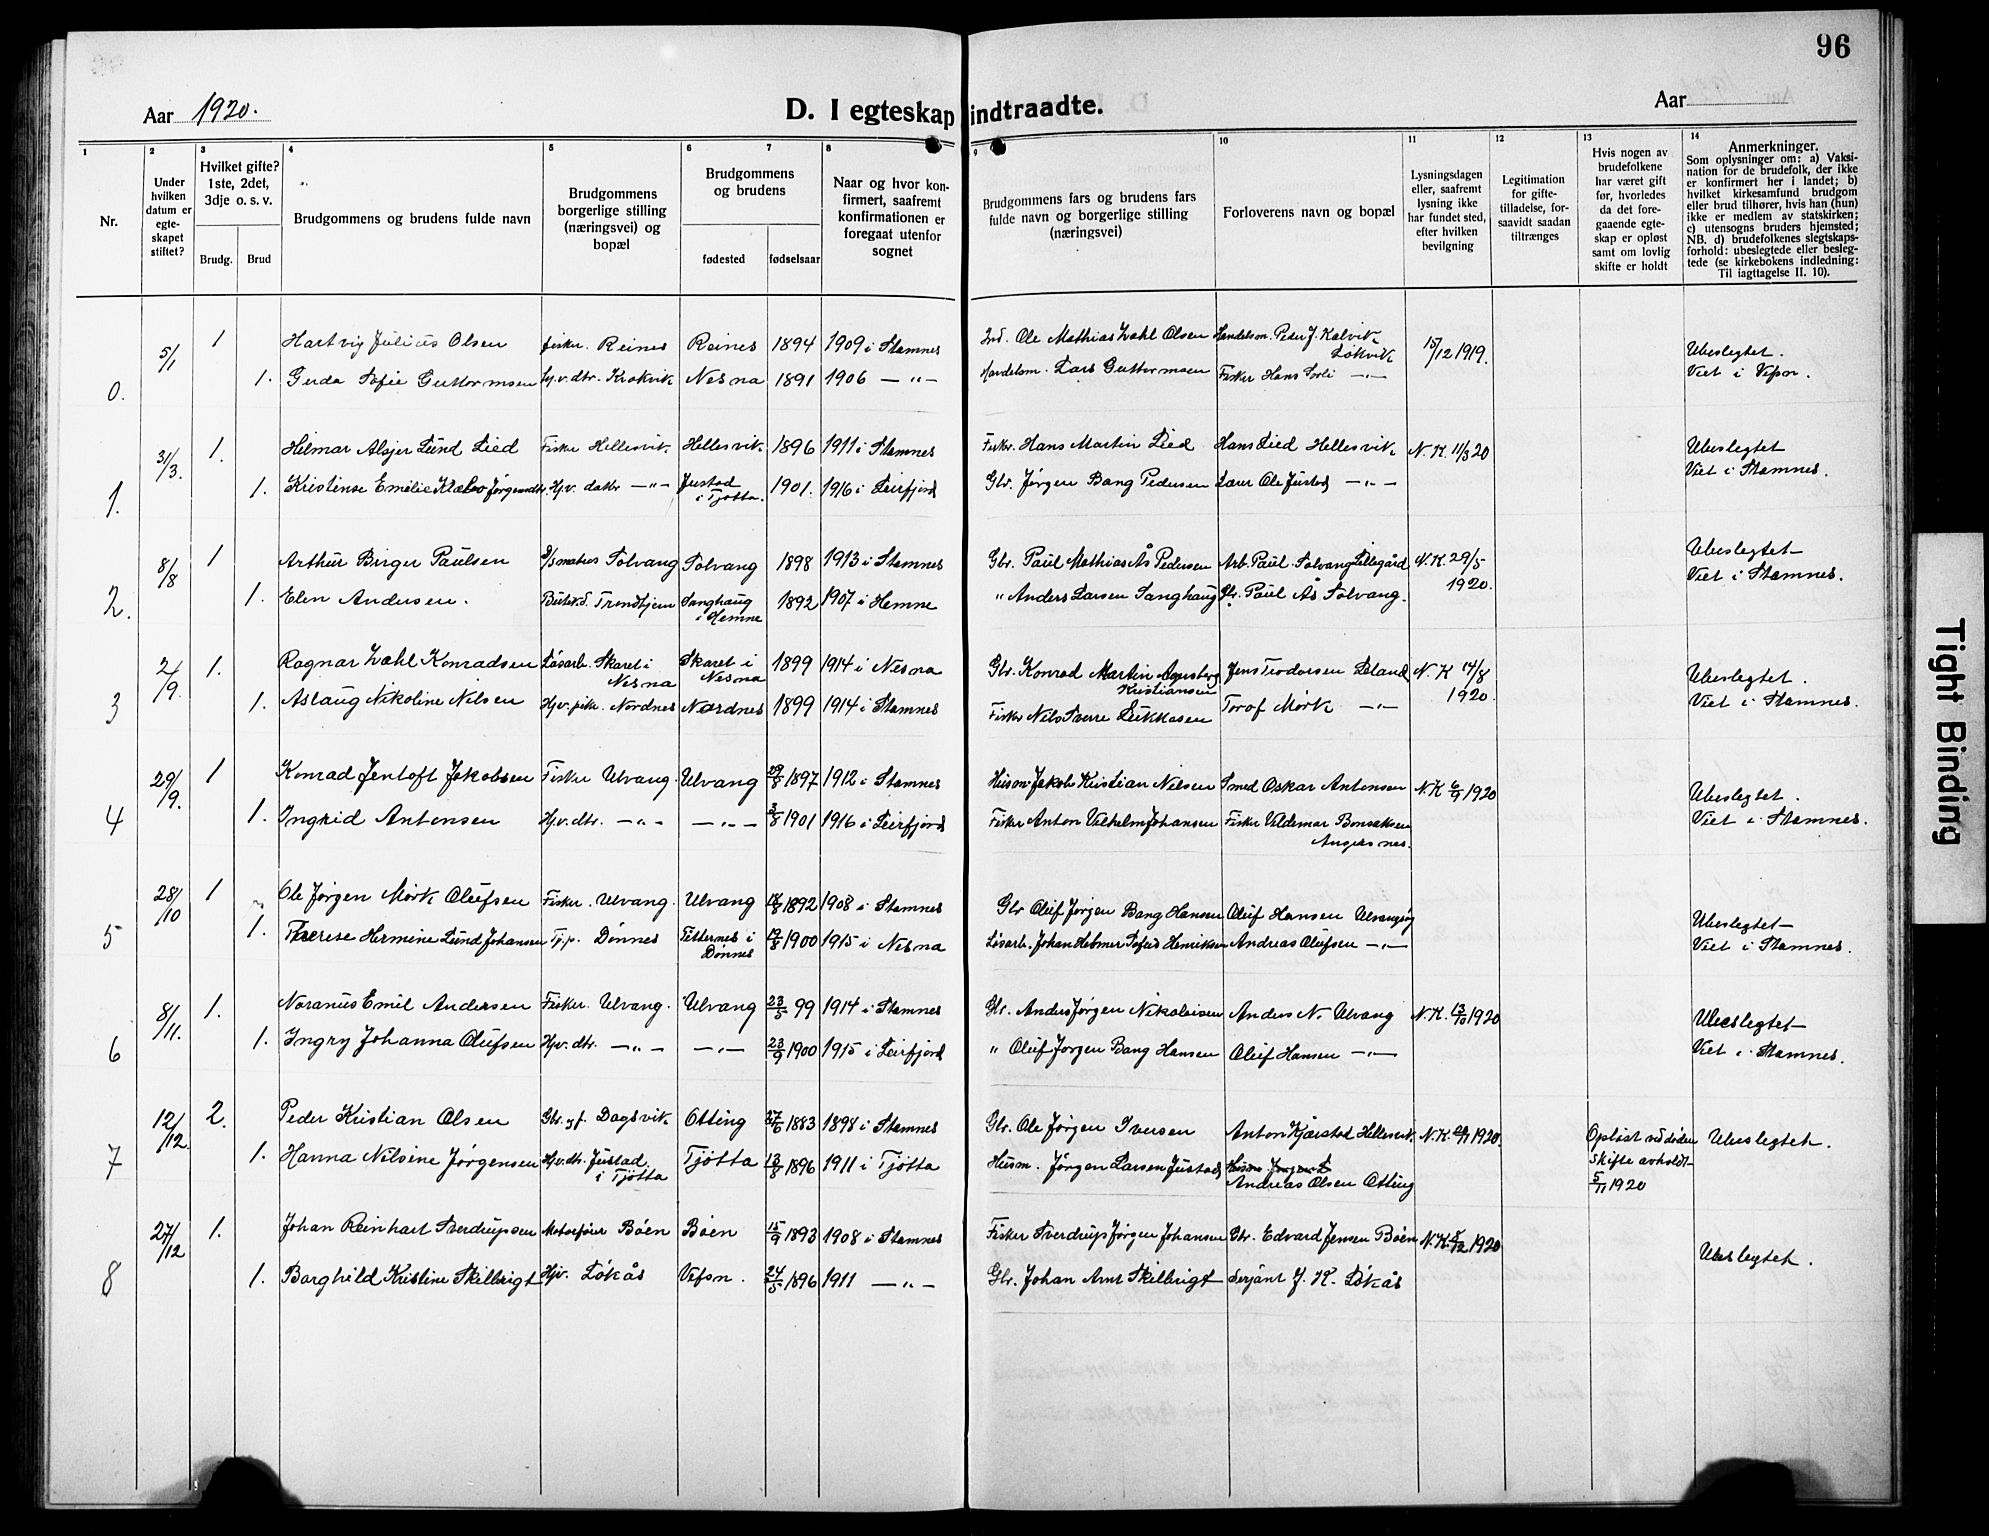 96
Aar 1920.
D. I egteskap indtraadte.
Aar
1
2
3
4
5
6
7
8
9
10
11
12
13
14
Nr.
Under hvilken datum er egte-skapet stiftet?
Hvilket gifte? 1ste, 2det, 3dje o. s. v.
Brudg.
Brud
Brudgommens og brudens fulde navn
Brudgommens borgerlige stilling (næringsvei) og bopæl
Brudgommens og brudens
fødested
fødselsaar
Naar og hvor kon-firmert, saafremt konfirmationen er foregaat utenfor sognet
Brudgommens fars og brudens fars fulde navn og borgerlige stilling (næringsvei)
Forloverens navn og bopæl
Lysningsdagen eller, saafremt lysning ikke har fundet sted, efter hvilken bevilgning
Legitimation for gifte-tilladelse, for-saavidt saadan tiltrænges
Hvis nogen av brudefolkene har været gift før, hvorledes da det fore-gaaende egte-skap er opløst samt om lovlig skifte er holdt
Anmerkninger.
Som oplysninger om: a) Vaksi-nation for de brudefolk, der ikke er konfirmert her i landet; b) hvilket kirkesamfund brudgom eller brud tilhører, hvis han (hun) ikke er medlem av statskirken; c) utensogns bruders hjemsted; NB. d) brudefolkenes slegtskaps-forhold: ubeslegtede eller besleg-tede (se kirkebokens indledning: Til iagttagelse II. 10).
0. 5/1 1 Hartvig Julius Olsen fisker. Reines Reines 1894 1909 i Stamnes Ind. Ole Mathias Zahl Olsen Handelsm. Peder J. Kalvik Løkvik 15/12 1919. Ubeslegtet.
1. Gerda Sofie Guttormsen hj.v.dtr. Krokvik Nesna 1891 1906 — „ — Handelsm. Lars Guttormsen Fisker Hans Sørli — „ — Viet i Vefsn.
1. 31/3. 1. Helmar Alsjer Lund Lied Fisker Hellesvik. Hellesvik. 1896 1911 i Stamnes Fisker. Hans Martin Lied Hans Lied Hellesvik N. K. 11/3 20 Ubeslegtet
1. Kristense Emelie Klæbo Jørgensdtr. Hj.v. datter — „ — Justad i Tjøtta. 1901. 1916 i Leirfjord Gbr. Jørgen Bang Pedersen Lærer Ole Justad — „ — Viet i Stamnes.
2. 8/8 1 Arthur Birger Paulsen matros Solvang Solvang 1898 1913 i Stamnes Gbr. Paul Mathias Ås Pedersen Arb. Paul Solvang Lillegård N. K. 29/5 1920. Ubeslegtet
1. Elen Andersen. Butikd. Trondhjem Sanghaug i Hemne 1892 1907 i Hemne „ Anders Larsen Sanghaug Gbr. Paul Ås Solvang. Viet i Stamnes.
3 2/9. 1. Ragnar Zahl Konradsen Løsarb. Skaret i Nesna Skaret i Nesna 1899 1914 i Nesna Gbr. Konrad Martin Kristiansen Jens Teodorsen Leland N. K 14/8 1920. Ubeslegtet.
1. Aslaug Nikoline Nilsen Hj.v. pike. Nordnes Nordnes 1899 1914 i Stamnes Fisker Nils Sverre Lukkasen Torof Mørk — „ — Viet i Stamnes.
4 29/9. 1 Konrad Jentoft Jakobsen Fisker Ulvang. Ulvang 29/8 1897 1912 i Stamnes Husm. Jakob Kristian Nilsen Smed Oskar Antonsen N. K 6/9 1920 Ubeslegtet.
1. Ingrid Antonsen Hj.v. dtr. — „ — — „ — 3/8 1901 1916 i Leirfjord Fisker Anton Vilhelm Johansen Fisker Valdemar Bonsaksen Angersnes. Viet i Stamnes.
5 28/10 1 Ole Jørgen Mørk Olufsen Fisker. Ulvang. Ulvang 18/8 1892 1908 i Stamnes Gbr Oluf Jørgen Bang Hansen Oluf Hansen Ulvangsøy Ubeslegtet
1. Therese Hermine Lund Johansen Tj.p. Dønnes Titternes i Dønnes 19/8 1900 1915 i Nesna Løsarb. Johan Helmer Sofus Henriksen Andreas Olufsen — „ — Viet i Stamnes.
6 8/11. 1. Noranus Emil Andersen Fisker. Ulvang. Ulvang 23/5 99 1914 i Stamnes Gbr. Anders Jørgen Nikolaisen Anders N. Ulvang N. K. 13/10 1920 Ubeslegtet
1. Ingry Johanna Olufsen Hj.v. dtr. — „ — — „ — 23/9 1900 1915 i Leirfjord „ Oluf Jørgen Bang Hansen Oluf Hansen — „ — Viet i Stamnes.
7 12/12 2. Peder Kristian Olsen Gbr. og f. Dagsvik Otting 27/6 1883 1898 i Stamnes Gbr. Ole Jørgen Iversen Anton Kjærstad Hellesvik. N. K. 1920. Opløst ved døden Skifte avholdt 5/11 1920 Ubeslegtet.
1. Hanna Nilsine Jørgensen Hj.v. dtr. Justad i Tjøtta Tjøtta 13/8 1896 1911 i Tjøtta Husm. Jørgen Larsen Justad Andreas Olsen Otting
8 27/12 1. Johan Reinhart Sverdrupsen Motorfører Båen Båen 15/9 1893 1908 i Stamnes Fisker Sverdrup Jørgen Johansen Gbr. Edvard Jensen Båen N. K. 1920 Ubeslegtet.
1. Borghild Kristine Skilbrigt Hjv. Løkås Vefsn. 24/5 1896 1911 — „ — Gbr. Johan Arnt Skilbrigt Serjant J. K. Løkås
Tight Binding